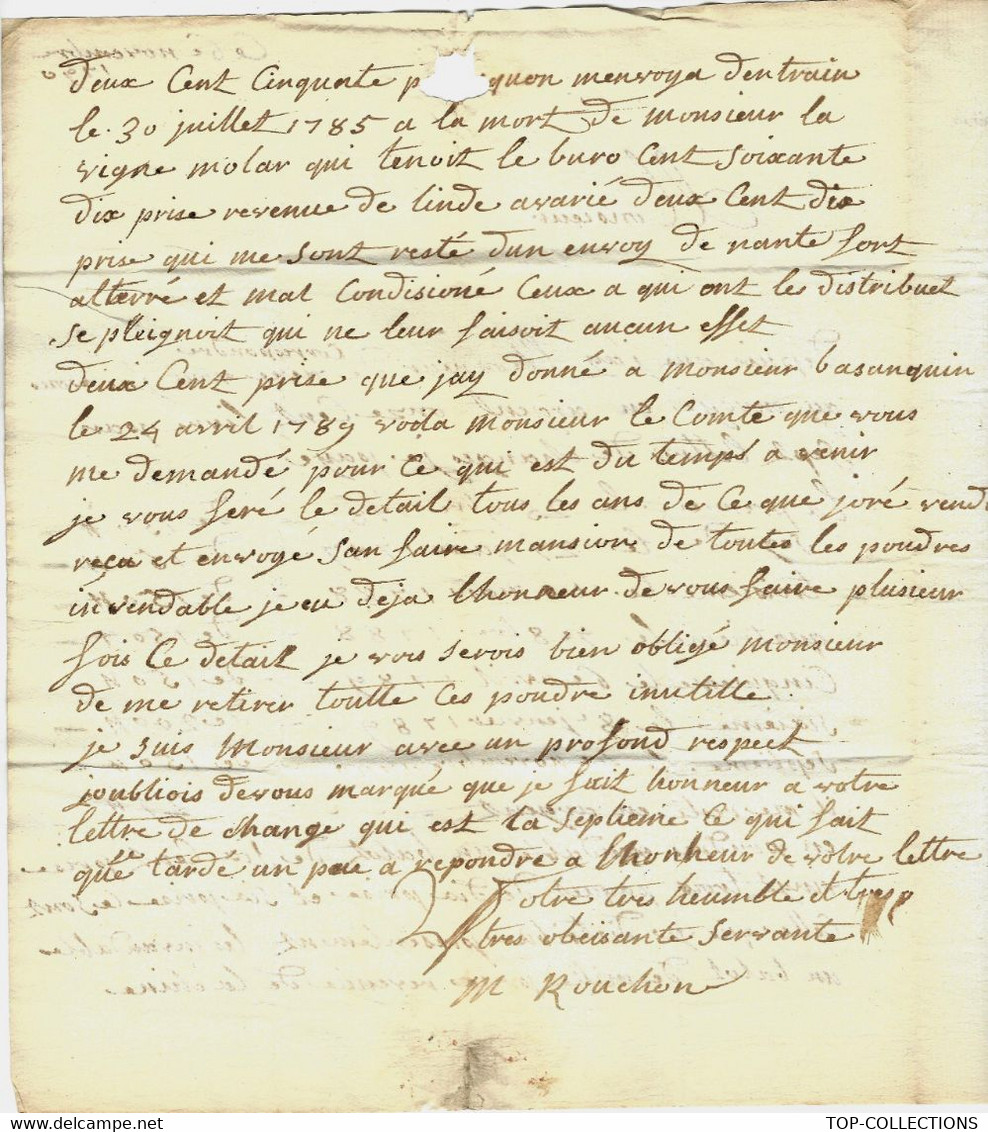 deux Cent Cinquate p quon menvoya dentrain
le 30 juillet 1785 a la mort de monsieur la
vigne molar qui tenoit le buro Cent soixante
dix prise revenue de linde avarié deux Cent dix
prise qui me sont resté dun envoy de nante fort
alterré et mal Condisioné Ceux a qui ont le distribuet
se pleignoit qui ne leur faisoit aucun effet
deux Cent prise que jay donné a monsieur basanquin
le 24 avril 1789 voda monsieur le Comte que vous
me demandé pour Ce qui est du temps a venir
je vous feré le detail tous les ans de Ce que joré vend
reçu et envoyé san faire mansion de toutes les poudres
invendable jeu deja lhonneur de vous faire plusieur
fois Ce detail je vois serois bien obligé monsieur
de me retirer toutte Ces poudre inutille
je suis monsieur avec un profond respect
joubliois devous marqué que je fait honneur a votre
lettre de change qui est la septieme Ce qui fait
que tardé un peu a repondre a lhonheur de votre lettre
Votre tres heumble et tres
tres obeisante servante
M Rouchon
TOP-COLLECTIONS